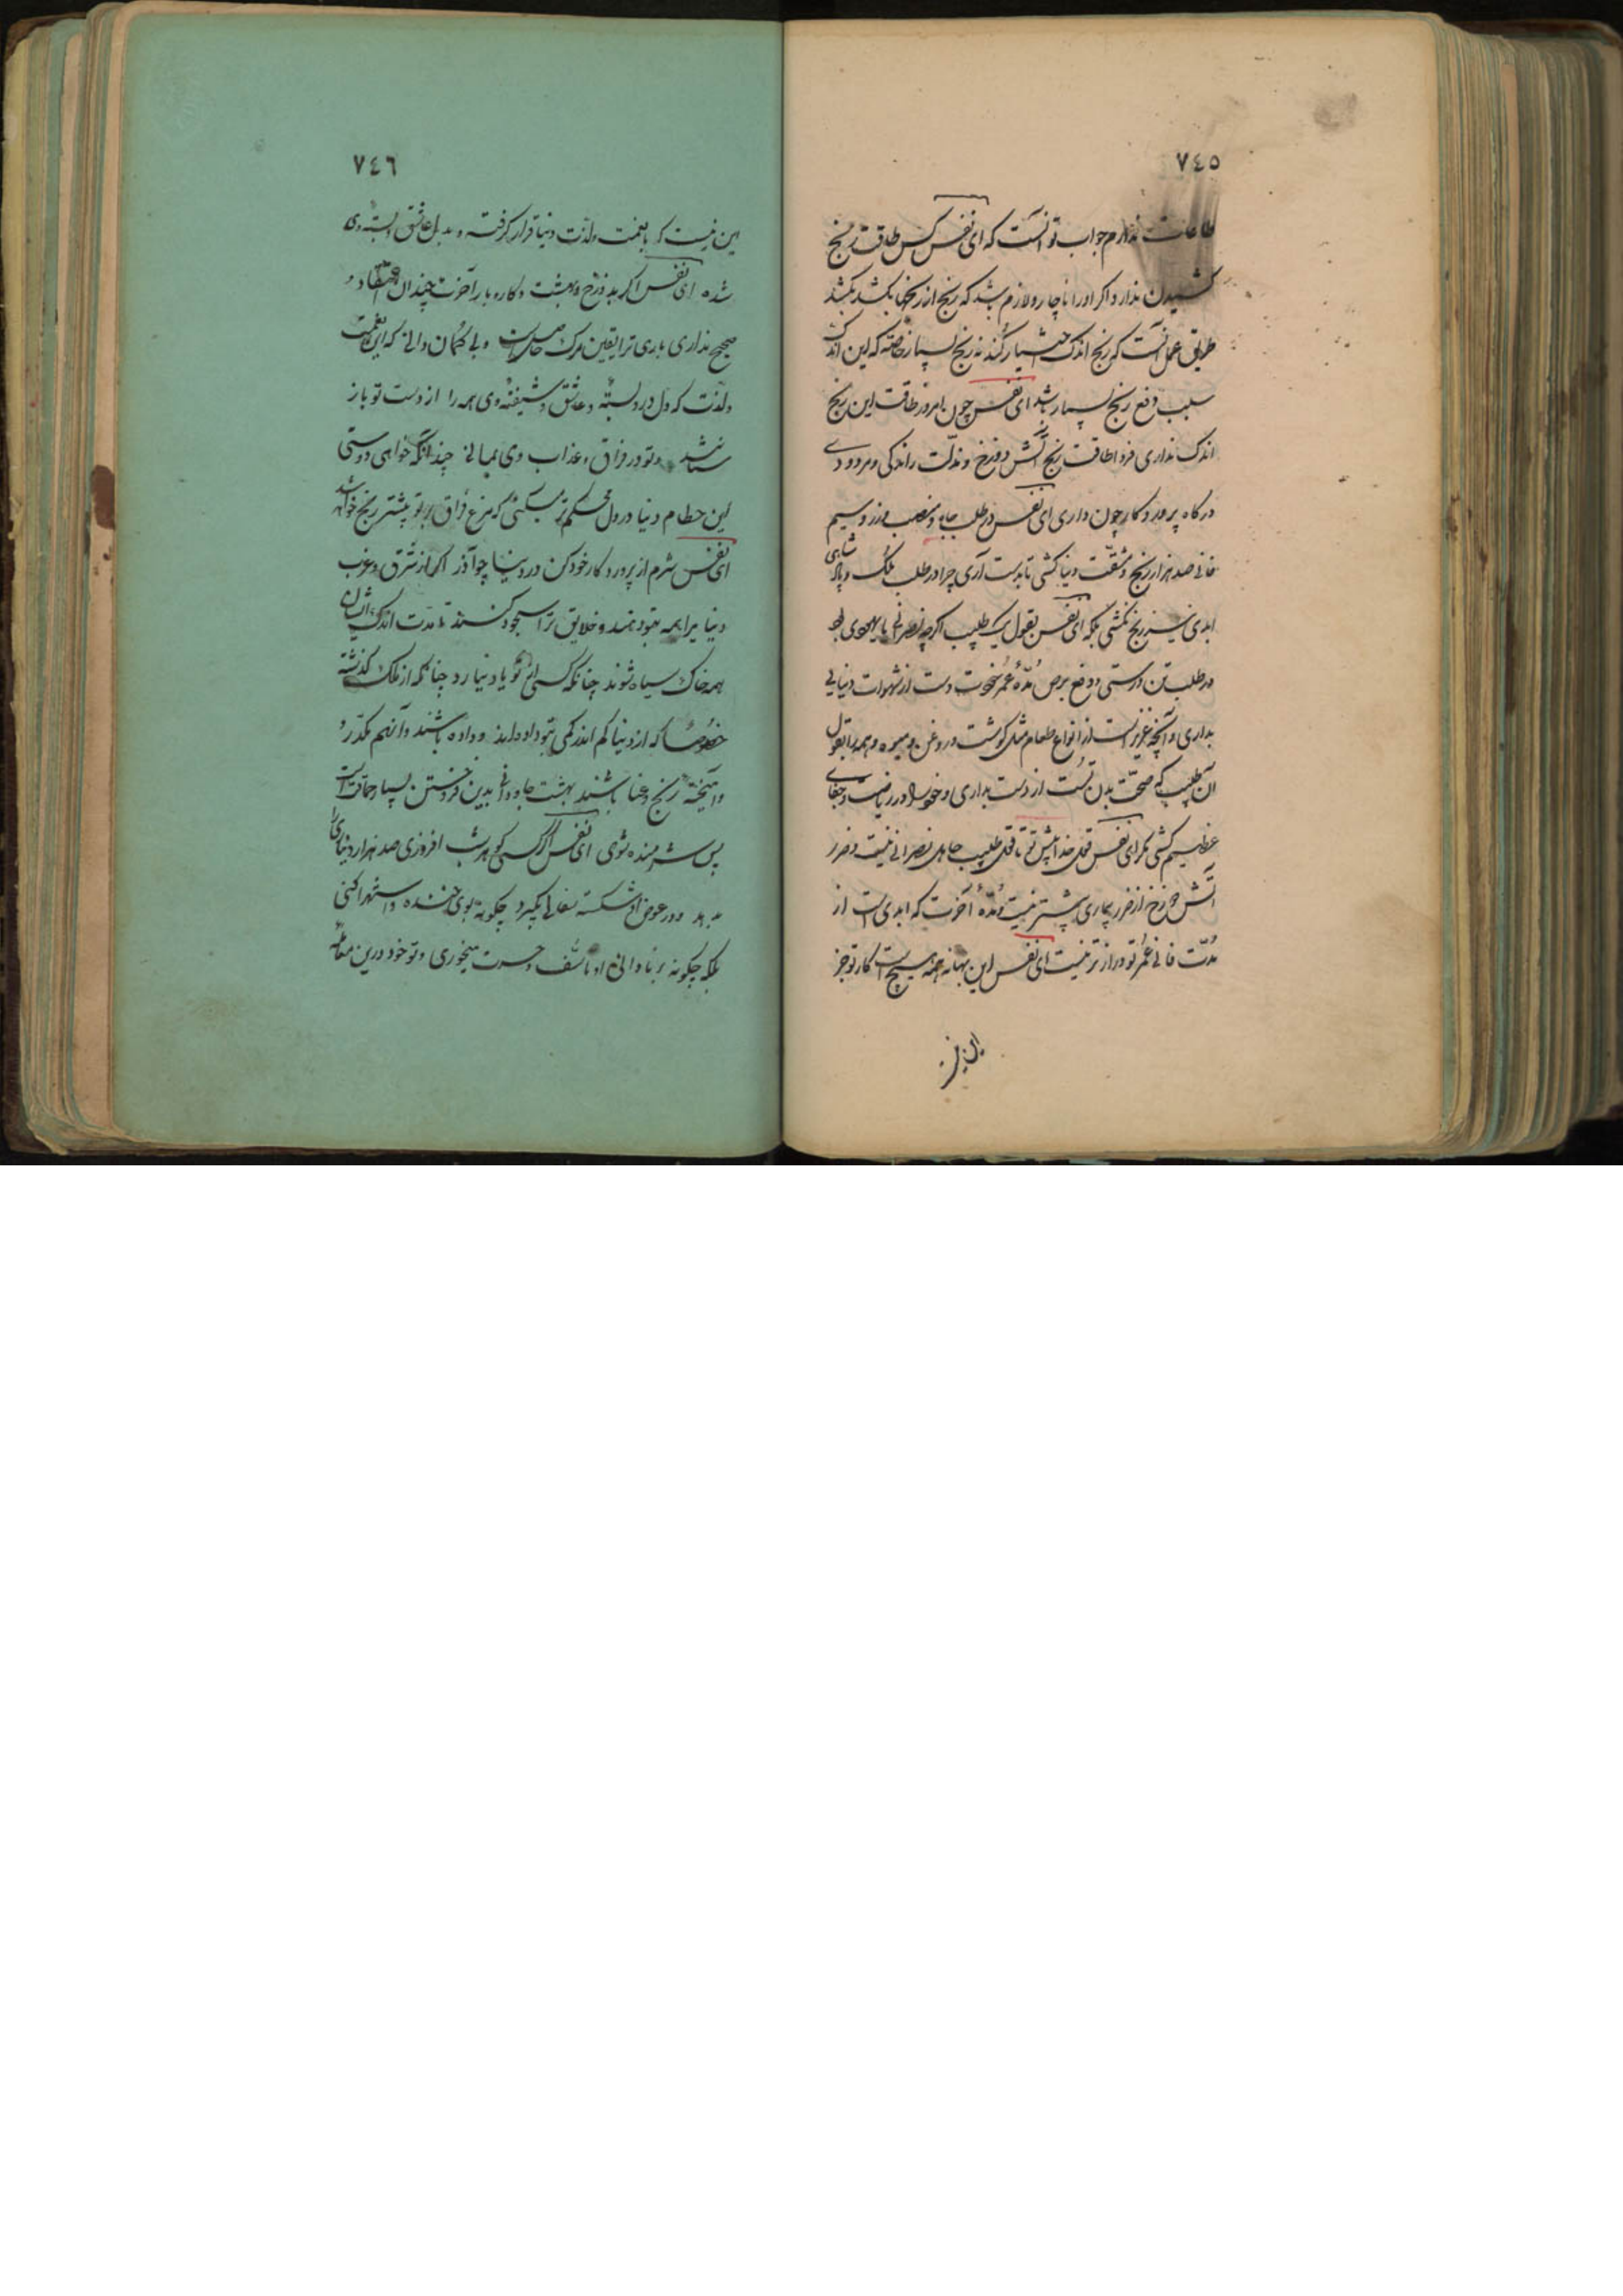 ٧٤٥
طاعات ندارم جواب تو آنست که ای نفس کس طاقت رنج
کشیدن ندارد اگر او را ناچار و لازم باشد که رنج از رنجها بکشد بکشد
طریق عمل آنست که رنج اندک اختیار کند نه رنج بسیار خاصه که این اندک
سبب دفع رنج بسیار باشد ای نفس چون امروز طاقت این رنج
اندک نداری فردا طاقت رنج آتش دوزخ و مذلت راندگی و مردودی
درگاه پروردگار چون داری ای نفس در طلب جاه و منصب و زر و سیم
فانی صد هزار رنج و مشقت دنیا کشی تا بدست آری چرا در طلب ملک و پادشاهی
ابدی نیز رنج نکشی بلکه ای نفس بقول یک طبیب اگرچه نصرانی یا یهودی بود
در طلب تن درستی و دفع مرض مده عمر خودت دست از شهوات دنیایی
بداری و آنچه عزیز است از انواع طعام مثل گوشت و روغن و میوه و همه را بقول
آن طبیب که صحت بدن تست از دست بداری و خود را در ریاضت و جفای
عظیم کشی مگر ای نفس قول خدا پیش تو تا قول طبیب جاهل نصرانی نیست و ضرر
آتش دوزخ از ضرر بیماری بیشتر نیست و مده آخرت که ابدی است از
مدت فانی عمر تو دراز تر نیست ای نفس این بهانه همه هیچ است کار تو جز
این نیست
٧٤٦
این نیست که با نعمت و لذت دنیا قرار گرفته و بدل عاشق و بسته وی
شده ای نفس اگر بدوزخ و بهشت و کار و بار آخرت چندان اعتقاد
صحیح نداری باری ترا یقین مرگ حاصل است و بی گمان دانی که این نعمت
و لذت که دل در و بسته و عاشق و شیفته وی همه را از دست تو باز
ستانند و تو در فراق و عذاب وی بمانی چندانکه خواهی دوستی
این حطام دنیا در دل محکم تر میکنی که نزع فراق بر تو بیشتر رنج خواهد شد
ای نفس شرم از پروردگار خود کن در دنیا چو آذر اگر از شرق و غرب
دنیا را همه بتو دهند و خلایق ترا سجود کنند تا مدت اندک ایشان
همه خاک سیاه شوند چنانکه کسی از تو یاد نیارد چنانکه از ملک گذشته
خصوصا که از دنیا کم اندر کمی بتو داده اند و داده باشند و آنهم مکدر و
و آمیخته رنج و عنا باشند بهشت جاودانی بدین فروختن بسیار حماقت است
پس شرمنده شوی ای نفس اگر کسی گوهر شب افروزی صد هزار دیناری را
بدهد و در عوض او شکسته سفالی بگیرد چگونه بوی خنده و استهزا کنی
بلکه چگونه بر نادانی او تأسف و حسرت میخوری و تو خود درین معامله